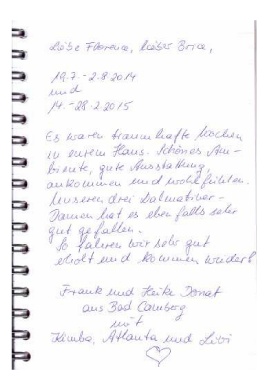 Liebe Florence, lieber Brice,
19.7. - 2.8.2014
und
14. - 28.2.2015
Es waren traumhafte Wochen
in eurem Haus. Schönes Am-
biente, gute Ausstattung,
ankommen und wohlfühlen.
Unseren drei Dalmatiner-
Damen hat es eben falls sehr
gut gefallen.
So fahren wir sehr gut
erholt und kommen wieder!
Frank und Heike Donat
aus Bad Camberg
mit
Kimba, Atlanta und Livi